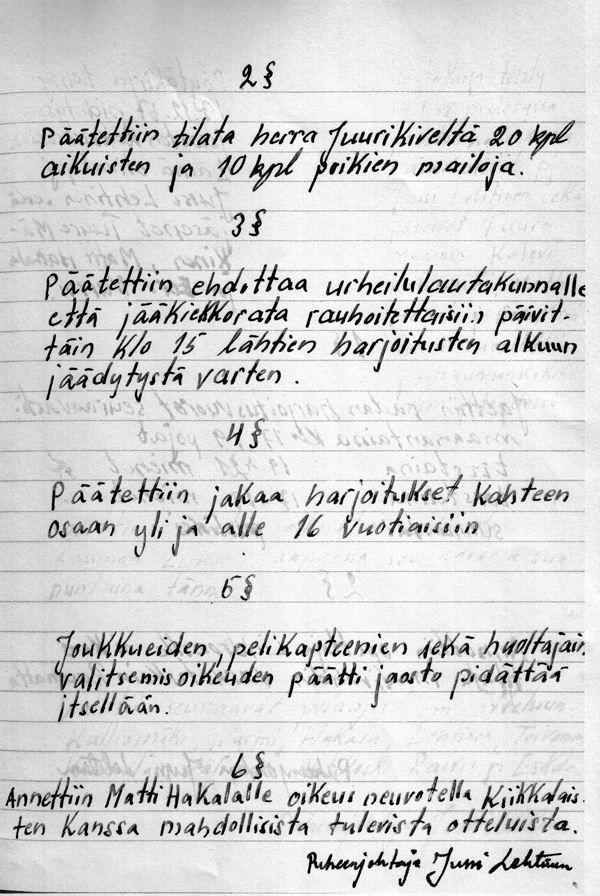 2 §
Päätettiin tilata herra Juurikiveltä 20 kpl
aikuisten ja 10 kpl poikien mailoja.
3 §
Päätettiin ehdottaa urheilulautakunnalle
että jääkiekkorata rauhoitettaisiin päivit-
täin klo 15 lähtien harjoitusten alkuun
jäädytystä varten.
4 §
Päätettiin jakaa harjoitukset kahteen
osaan yli ja alle 16 vuotiaisiin
5 §
Joukkueiden, pelikapteenien sekä huoltajain
valitsemisoikeuden päätti jaosto pidättää
itsellään.
6 §
Annettiin Matti Hakalalle oikeus neuvotella Kiikkalais-
ten kanssa mahdollisista tulevista otteluista.
Puheenjohtaja Jussi Lehtinen